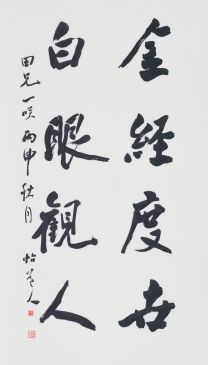 金經度世
白眼觀人
田兄一咲 丙申秋月 怡道人